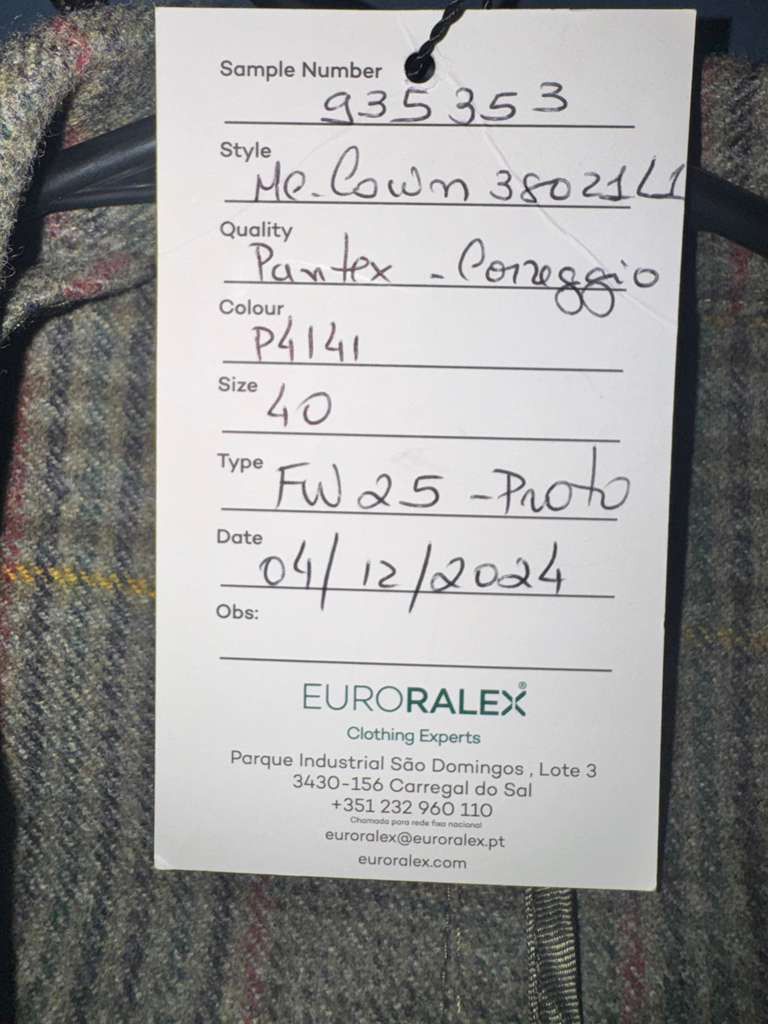 Sample Number
935353
Style
Mc.Cown 38021L1
Quality
Pantex - Correggio
Colour
P4141
Size
40
Type
FW25 - Proto
Date
04/12/2024
Obs:
EURORALEX®
Clothing Experts
Parque Industrial São Domingos , Lote 3
3430-156 Carregal do Sal
+351 232 960 110
Chamada para rede fixa nacional
euroralex@euroralex.pt
euroralex.com